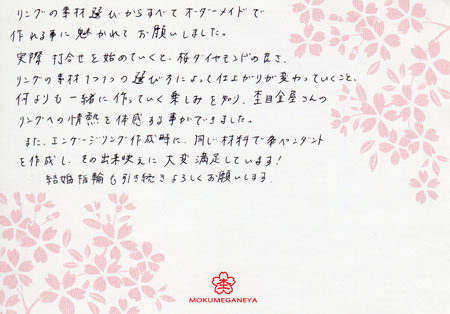 リングの素材選びからすべてオーダーメイドで
作れる事に魅かれてお願いしました。
実際打合せを始めていくと、桜ダイヤモンドの良さ、
リングの素材1つ1つの選び方によって仕上がりが変わっていくこと、
何よりも一緒に作っていく楽しみを知り、杢目金屋さんの
リングへの情熱を体感する事ができました。
また、エンゲージリング作成時に、同じ材料でペンダント
を作成し、その出来映えに大変満足しています!
結婚指輪も引き続きよろしくお願いします。
MOKUMEGANEYA